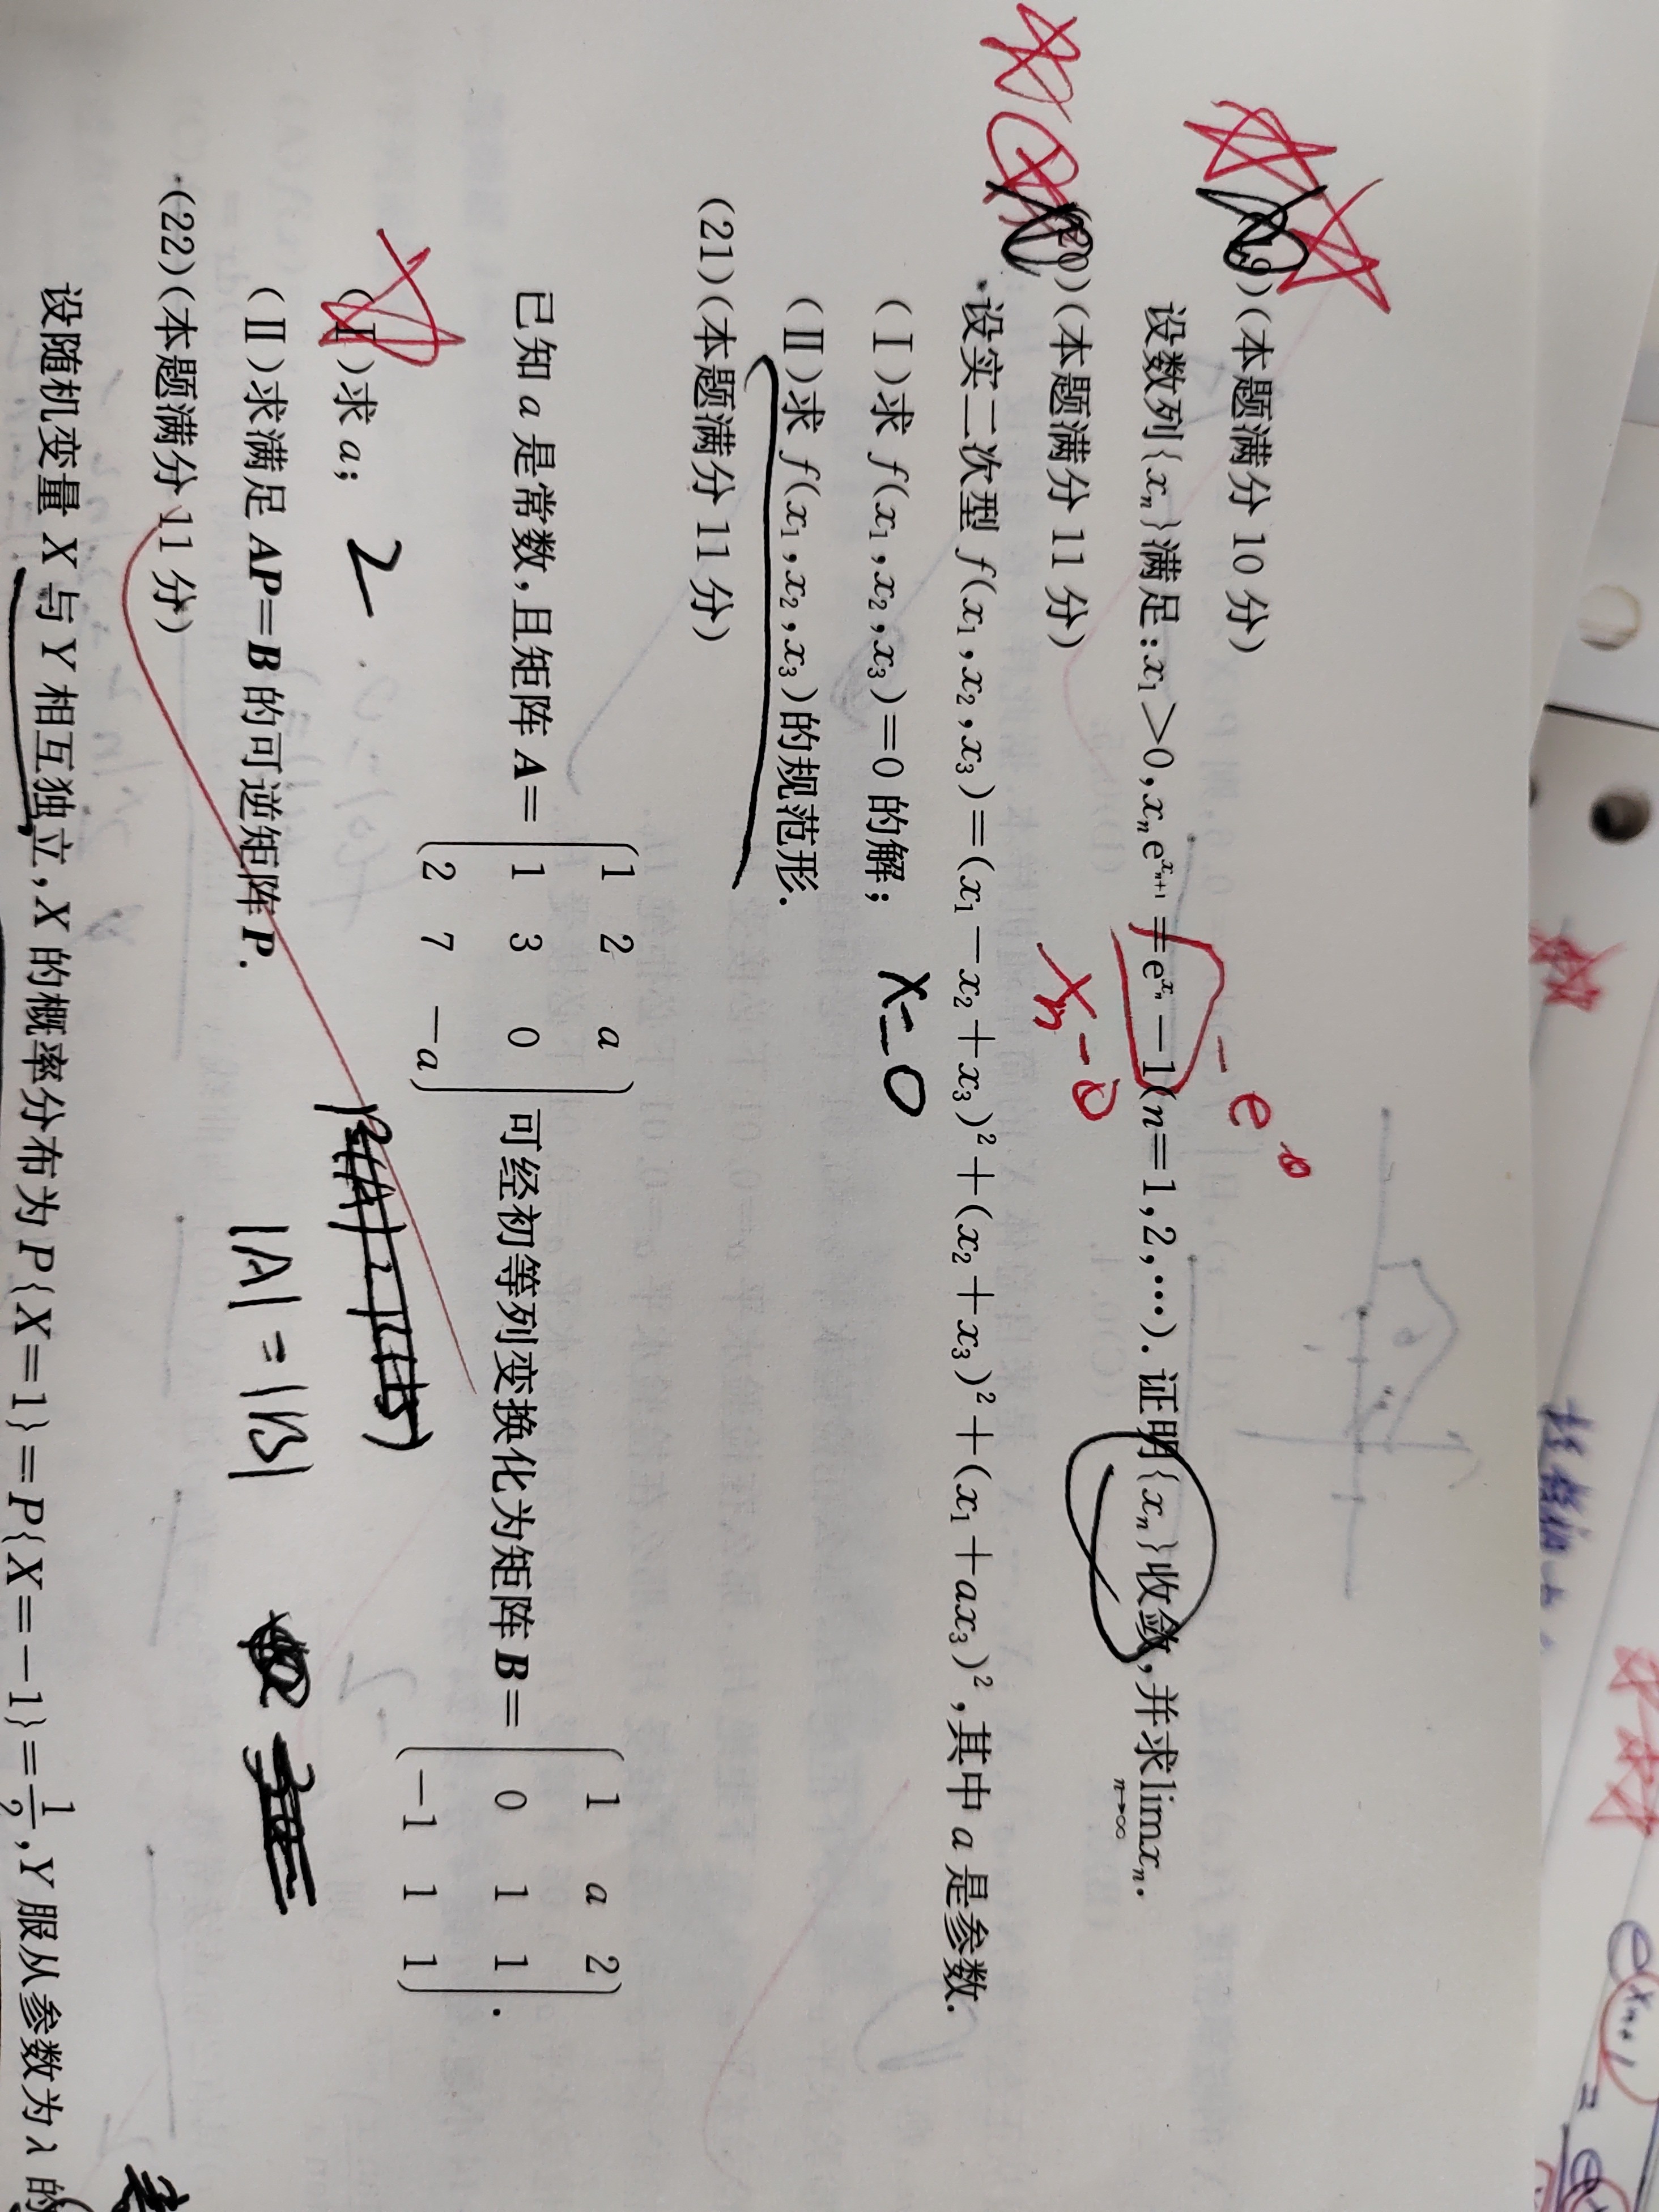 (19)(本题满分 10 分)
设数列{xₙ}满足:x₁>0,xₙe^{xₙ₊₁}=e^{xₙ}-1(n=1,2,…). 证明{xₙ}收敛,并求lim_{n→∞}xₙ.
- e⁰
xₙ - 0
(20)(本题满分 11 分)
设实二次型 f(x₁,x₂,x₃)=(x₁-x₂+x₃)²+(x₂+x₃)²+(x₁+ax₃)²,其中 a 是参数.
(Ⅰ)求 f(x₁,x₂,x₃)=0 的解; X=0
(Ⅱ)求 f(x₁,x₂,x₃)的规范形.
(21)(本题满分 11 分)
已知 a 是常数,且矩阵 A=(1 2 a
1 3 0
2 7 -a)可经初等列变换化为矩阵 B=(1 a 2
0 1 1
-1 1 1).
(Ⅰ)求 a; 2
(Ⅱ)求满足 AP=B 的可逆矩阵 P. |A| = |B|
(22)(本题满分 11 分)
设随机变量 X 与 Y 相互独立,X 的概率分布为 P{X=1}=P{X=-1}=1/2,Y 服从参数为 λ 的
e^{xₙ₊₁} =